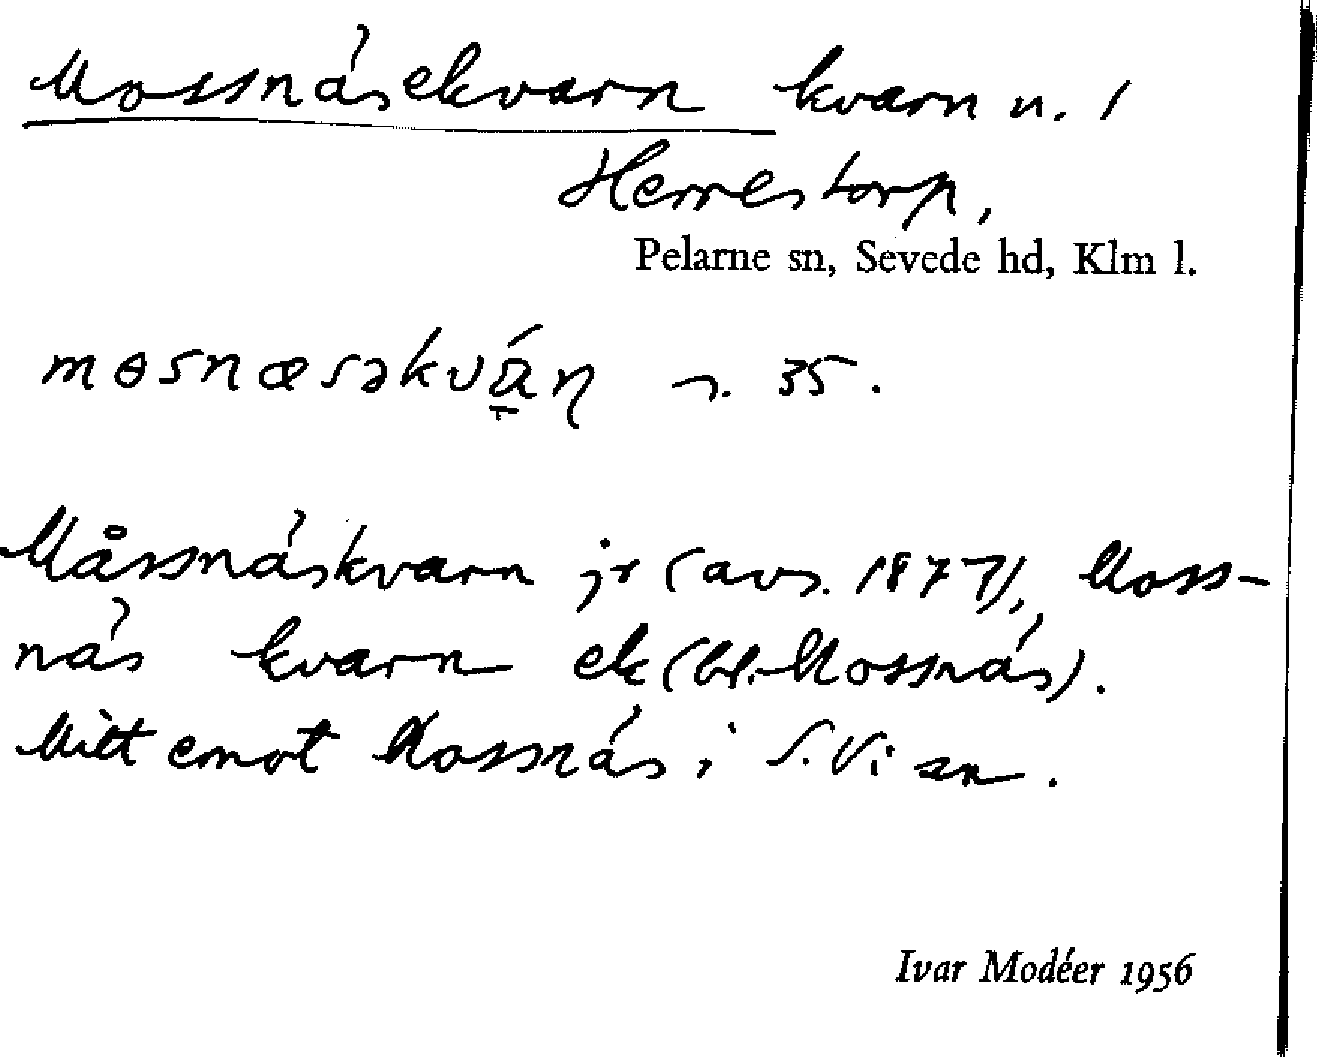 Mossnäsekvarn kvarn n. 1
Herrestorp,
Pelarne sn, Sevede hd, Klm l.
mɵsnæsəkván s. 35.
Måssnäskvarn jr (avs. 1877), Moss-
näs kvarn ek (bl. Mossnäs).
Mitt emot Mossnäs i S. Vi sn.
Ivar Modéer 1956